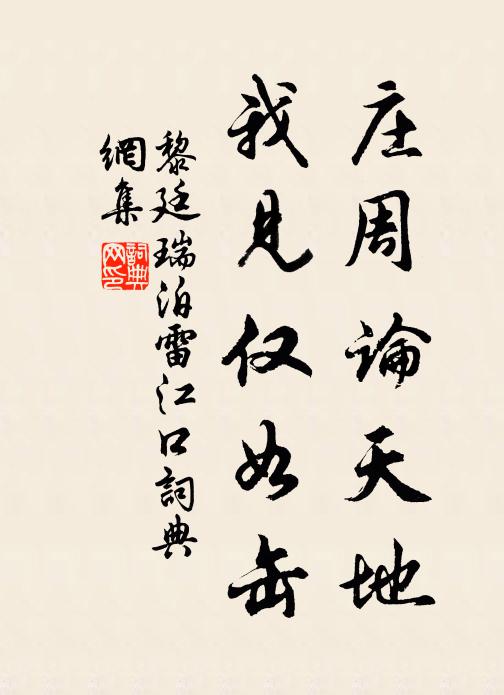 庄周論天地
我見仅如缶
黎廷瑞泊雷江口詞典
網集
詞典网印